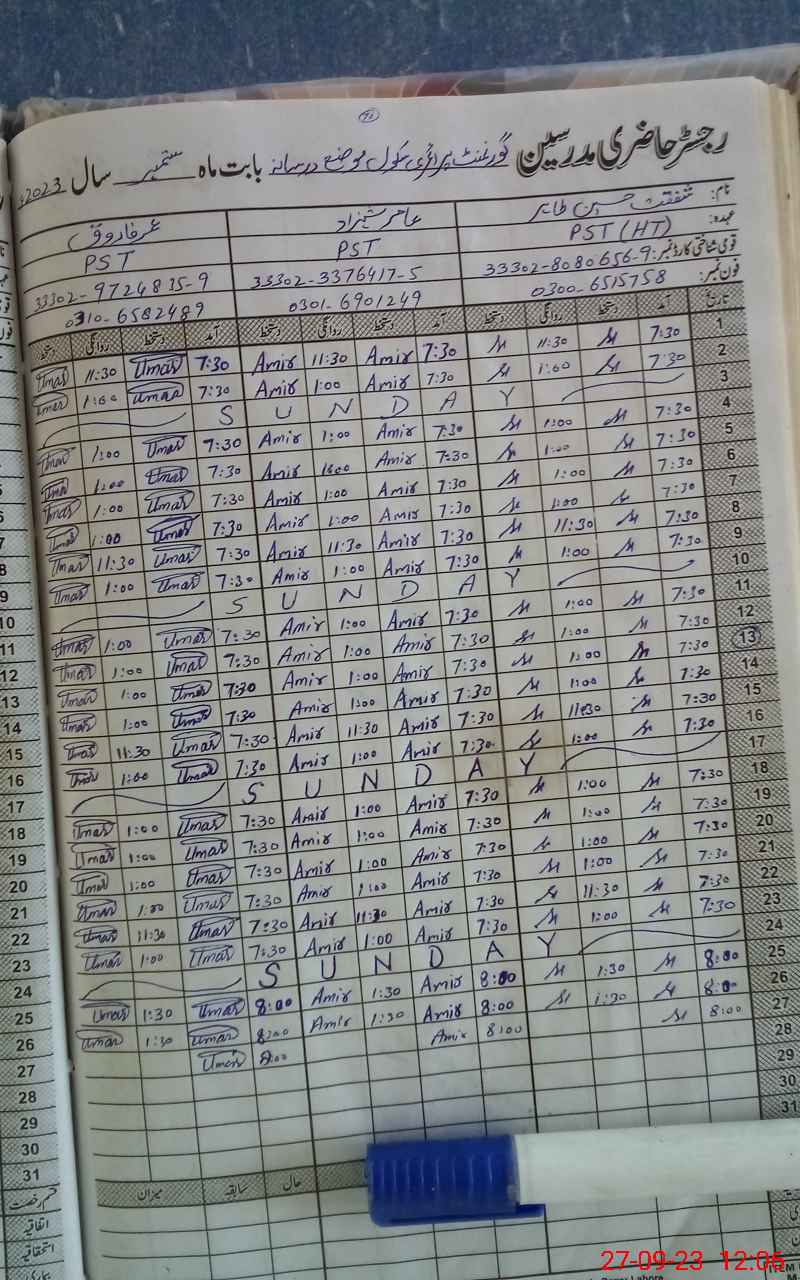 رجسٹر حاضری مدرسین گورنمنٹ پرائمری سکول موضع درسانہ بابت ماہ ستمبر سال 2023ء
نام: شفقت حسین طاہر عامر شہزاد عمر فاروق
عہدہ: PST (HT) PST PST
قومی شناختی کارڈ نمبر: 33302-8080656-9 33302-3376417-5 33302-9724835-9
فون نمبر: 0300-6515758 0301-6901249 0310-6582489
تاریخ آمد دستخط روانگی دستخط آمد دستخط روانگی دستخط آمد دستخط روانگی دستخط
1 7:30 11:30 7:30 Amir 11:30 Amir 7:30 Umar 11:30 Umar
2 7:30 1:00 7:30 Amir 1:00 Amir 7:30 Umar 1:00 Umar
3 SUNDAY
4 7:30 1:00 7:30 Amir 1:00 Amir 7:30 Umar 1:00 Umar
5 7:30 1:00 7:30 Amir 1:00 Amir 7:30 Umar 1:00 Umar
6 7:30 1:00 7:30 Amir 1:00 Amir 7:30 Umar 1:00 Umar
7 7:30 1:00 7:30 Amir 1:00 Amir 7:30 Umar 1:00 Umar
8 7:30 11:30 7:30 Amir 11:30 Amir 7:30 Umar 11:30 Umar
9 7:30 1:00 7:30 Amir 1:00 Amir 7:30 Umar 1:00 Umar
10 SUNDAY
11 7:30 1:00 7:30 Amir 1:00 Amir 7:30 Umar 1:00 Umar
12 7:30 1:00 7:30 Amir 1:00 Amir 7:30 Umar 1:00 Umar
13 7:30 1:00 7:30 Amir 1:00 Amir 7:30 Umar 1:00 Umar
14 7:30 1:00 7:30 Amir 1:00 Amir 7:30 Umar 1:00 Umar
15 7:30 11:30 7:30 Amir 11:30 Amir 7:30 Umar 11:30 Umar
16 7:30 1:00 7:30 Amir 1:00 Amir 7:30 Umar 1:00 Umar
17 SUNDAY
18 7:30 1:00 7:30 Amir 1:00 Amir 7:30 Umar 1:00 Umar
19 7:30 1:00 7:30 Amir 1:00 Amir 7:30 Umar 1:00 Umar
20 7:30 1:00 7:30 Amir 1:00 Amir 7:30 Umar 1:00 Umar
21 7:30 1:00 7:30 Amir 1:00 Amir 7:30 Umar 1:00 Umar
22 7:30 11:30 7:30 Amir 11:30 Amir 7:30 Umar 11:30 Umar
23 7:30 1:00 7:30 Amir 1:00 Amir 7:30 Umar 1:00 Umar
24 SUNDAY
25 8:00 1:30 8:00 Amir 1:30 Amir 8:00 Umar 1:30 Umar
26 8:00 1:30 8:00 Amir 1:30 Amir 8:00 Umar 1:30 Umar
27 8:00 8:00 Amir 8:00 Umar
28
29
30
31
حال سابقہ میزان
قسم رخصت
اتفاقیہ
استحقاقیہ
بیماری
27-09-23 12:05